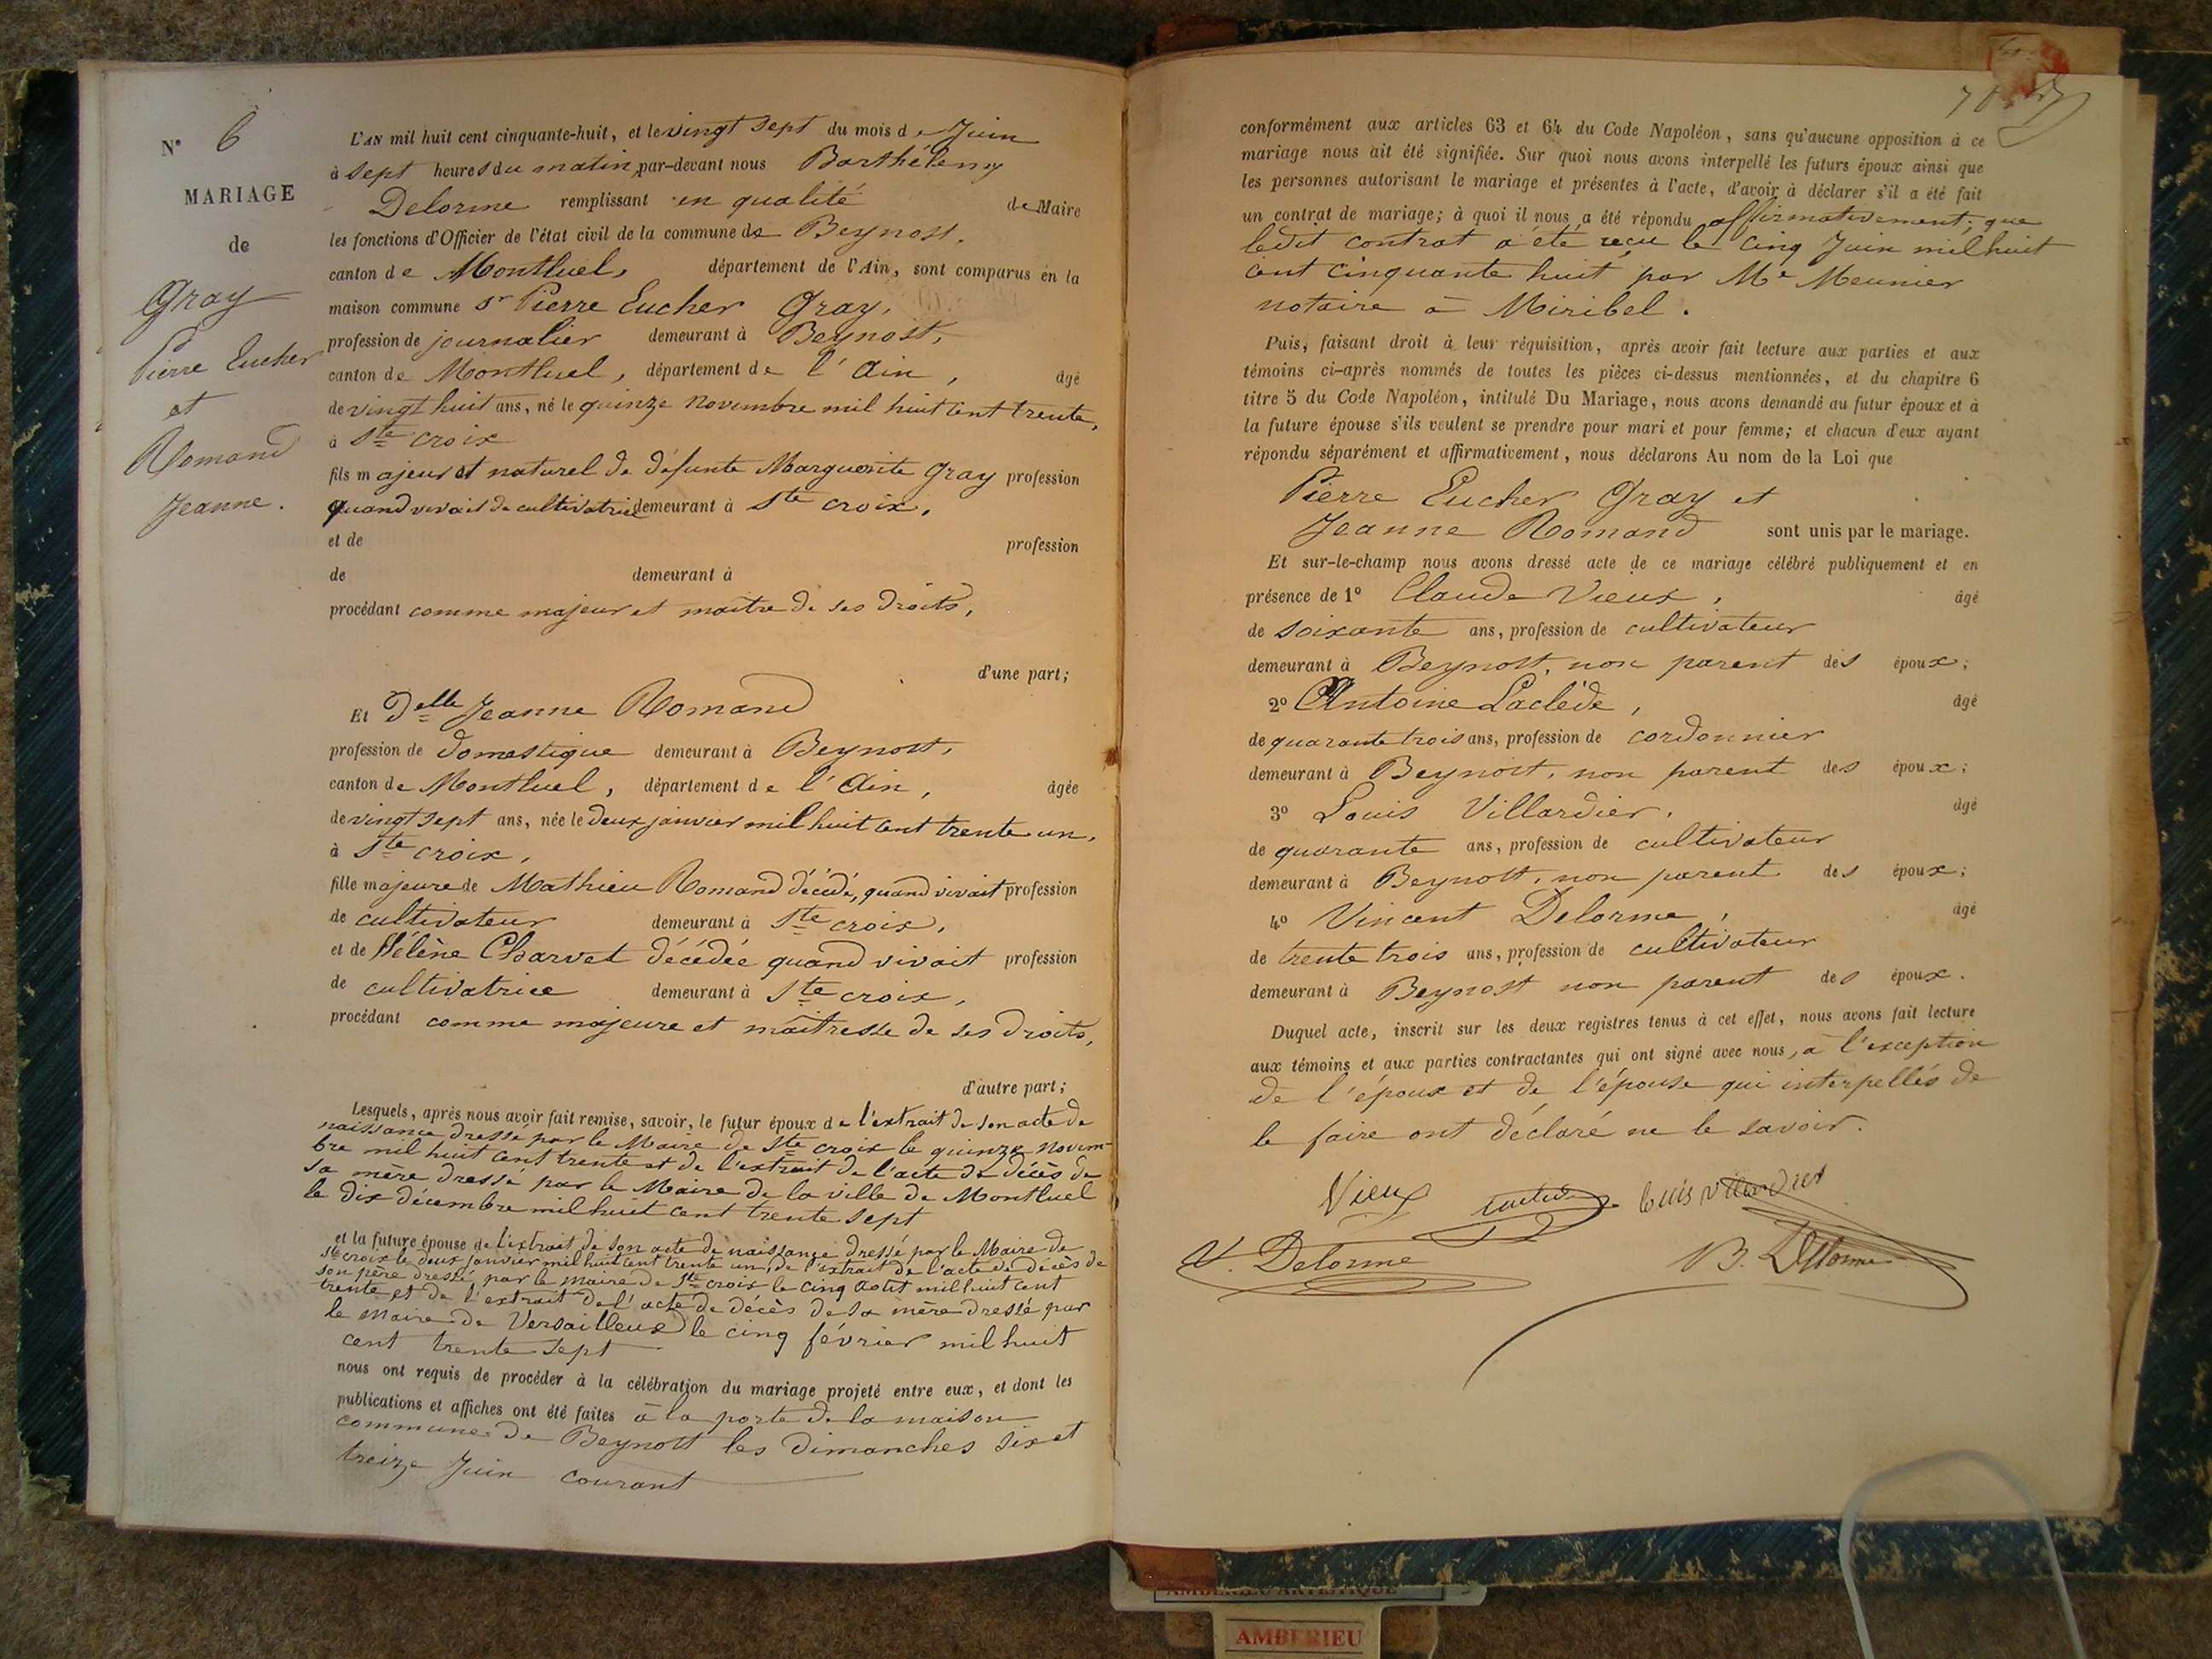 N° 6
MARIAGE
de
Gray
Pierre Eucher
et
Romand
Jeanne.
L'AN mil huit cent cinquante-huit, et le vingt sept du mois de Juin
à sept heures du matin, par-devant nous Barthélemy
Delorme remplissant en qualité de Maire
les fonctions d'Officier de l'état civil de la commune de Beynost.
canton de Montluel, département de l'Ain, sont comparus en la
maison commune sr Pierre Eucher Gray,
profession de journalier demeurant à Beynost,
canton de Montluel, département de l'Ain, âgé
de vingt huit ans, né le quinze Novembre mil huit cent trente,
à Ste croix
fils majeur et naturel de défunte Marguerite Gray profession
quand vivait de cultivatrice demeurant à Ste croix.
et de profession
de demeurant à
procédant comme majeur et maitre de ses droits,
d'une part;
Et Delle Jeanne Romand
profession de domestique demeurant à Beynost,
canton de Montluel, département de l'Ain, âgée
de vingt sept ans, née le deux janvier mil huit cent trente un,
à Ste croix,
fille majeure de Mathieu Romand décédé, quand vivait profession
de cultivateur demeurant à Ste croix,
et de Hélène Charvet décédée quand vivait profession
de cultivatrice demeurant à Ste croix,
procédant comme majeure et maîtresse de ses droits,
d'autre part;
Lesquels, après nous avoir fait remise, savoir, le futur époux de l'extrait de son acte de
naissance dressé par le Maire de Ste croix le quinze Novem-
bre mil huit cent trente et de l'extrait de l'acte de décès de
sa mère dressé par le Maire de la ville de Montluel
le dix décembre mil huit cent trente sept
et la future épouse de l'extrait de son acte de naissance dressé par le Maire de
Ste croix le deux janvier mil huit cent trente un, de l'extrait de l'acte de décès de
son père dressé par le Maire de Ste croix le cinq Août mil huit cent
trente et de l'extrait de l'acte de décès de sa mère dressé par
le Maire de Versailleux le cinq février mil huit
cent trente sept
nous ont requis de procéder à la célébration du mariage projeté entre eux, et dont les
publications et affiches ont été faites à la porte de la maison
commune de Beynost les dimanches six et
treize Juin courant
conformément aux articles 63 et 64 du Code Napoléon, sans qu'aucune opposition à ce
mariage nous ait été signifiée. Sur quoi nous avons interpellé les futurs époux ainsi que
les personnes autorisant le mariage et présentes à l'acte, d'avoir à déclarer s'il a été fait
un contrat de mariage; à quoi il nous a été répondu affirmativement; que
ledit contrat a été reçu le cinq Juin mil huit
cent cinquante huit, par Me Meunier
notaire à Miribel.
Puis, faisant droit à leur réquisition, après avoir fait lecture aux parties et aux
témoins ci-après nommés de toutes les pièces ci-dessus mentionnées, et du chapitre 6
titre 5 du Code Napoléon, intitulé Du Mariage, nous avons demandé au futur époux et à
la future épouse s'ils veulent se prendre pour mari et pour femme; et chacun d'eux ayant
répondu séparément et affirmativement, nous déclarons Au nom de la Loi que
Pierre Eucher Gray et
Jeanne Romand sont unis par le mariage.
Et sur-le-champ nous avons dressé acte de ce mariage célébré publiquement et en
présence de 1° Claude Vieux, âgé
de soixante ans, profession de cultivateur
demeurant à Beynost, non parent des époux;
2° Antoine Laclède, âgé
de quarante trois ans, profession de cordonnier
demeurant à Beynost, non parent des époux;
3° Louis Villardier, âgé
de quarante ans, profession de cultivateur
demeurant à Beynost, non parent des époux;
4° Vincent Delorme, âgé
de trente trois ans, profession de cultivateur
demeurant à Beynost non parent des époux.
Duquel acte, inscrit sur les deux registres tenus à cet effet, nous avons fait lecture
aux témoins et aux parties contractantes qui ont signé avec nous, à l'exception
de l'époux et de l'épouse qui interpellés de
le faire ont déclaré ne le savoir.
Vieux Louis Villardier
V. Delorme B. Delorme
AMBERIEU